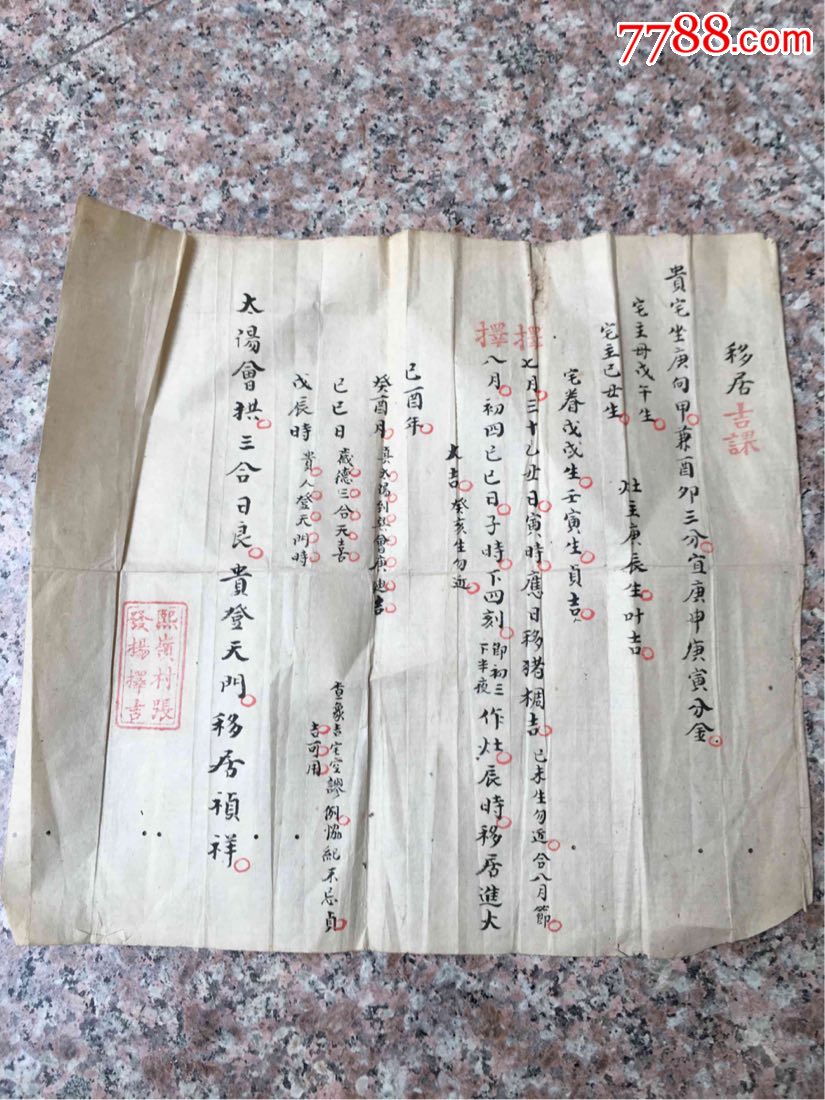 7788.com
移居吉課
貴宅坐庚向甲兼酉卯三分宜庚申庚寅分金
宅主母戊午生
宅主己丑生 灶主庚辰生叶吉
宅眷戊戌生壬寅生貞吉
擇七月三十乙丑日寅時應日移猪椆吉 己未生勿近 合八月節
擇八月初四己巳日子時下四刻 即初三下半夜 作灶辰時移居進大
大吉 癸亥生勿近
己酉年
癸酉月
己巳日 歲德三合天喜
戊辰時 貴人登天門時
查象吉宅空謬例協紀不忌貞
吉可用
太陽會拱三合日良貴登天門移居禎祥
熙嶺村張
發楊擇吉